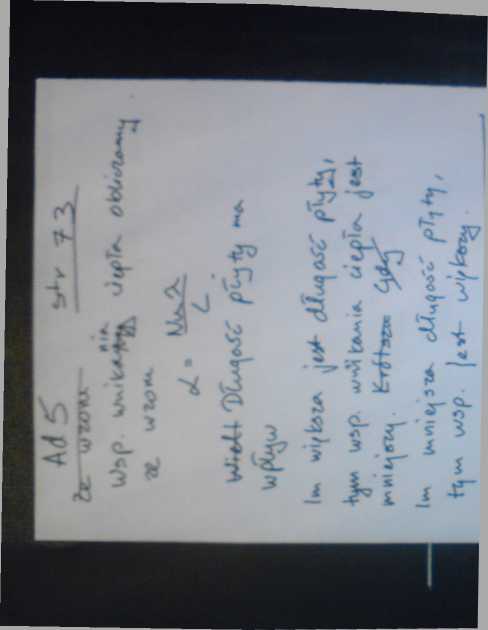 Ad 5 str 73
ze wzoru
Wsp. wnikania ciepła obliczamy
ze wzoru
α = Nu λ / L
Wielk Długość płyty ma
wpływ
Im większa jest długość płyty,
tym wsp. wnikania ciepła jest
mniejszy. Gdy
Im mniejsza długość płyty,
tym wsp. jest większy.